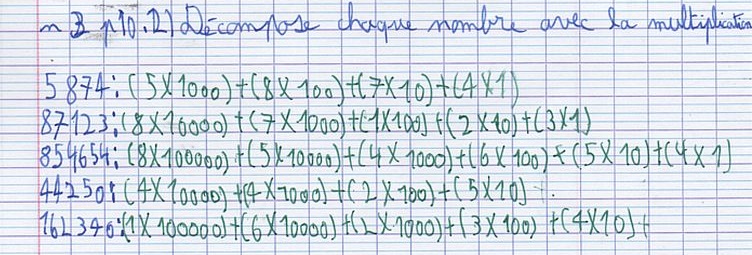 n 3 p10.2) Décompose chaque nombre avec la multiplication
5874: (5X1000)+(8X100)+(7X10)+(4X1)
87123: (8X10000)+(7X1000)+(1X100)+(2X10)+(3X1)
854654: (8X100000)+(5X10000)+(4X1000)+(6X100)+(5X10)+(4X1)
44250: (4X10000)+(4X1000)+(2X100)+(5X10) .
162340: (1X100000)+(6X10000)+(2X1000)+(3X100)+(4X10)+